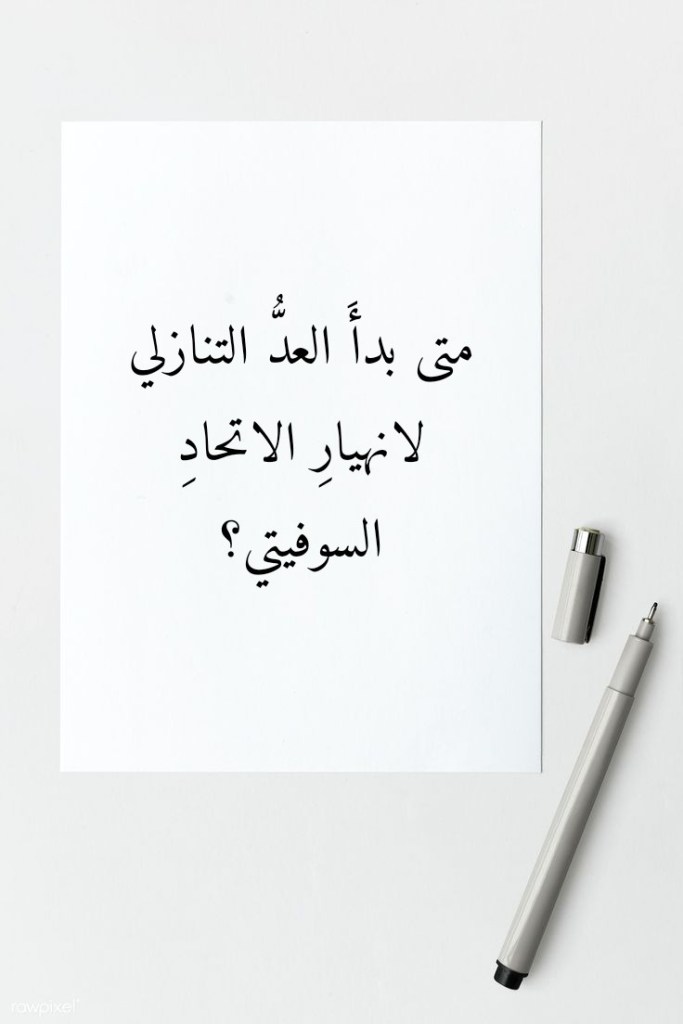 متى بدأَ العدُّ التنازلي
لانهيارِ الاتحادِ
السوفيتي؟
rawpixel